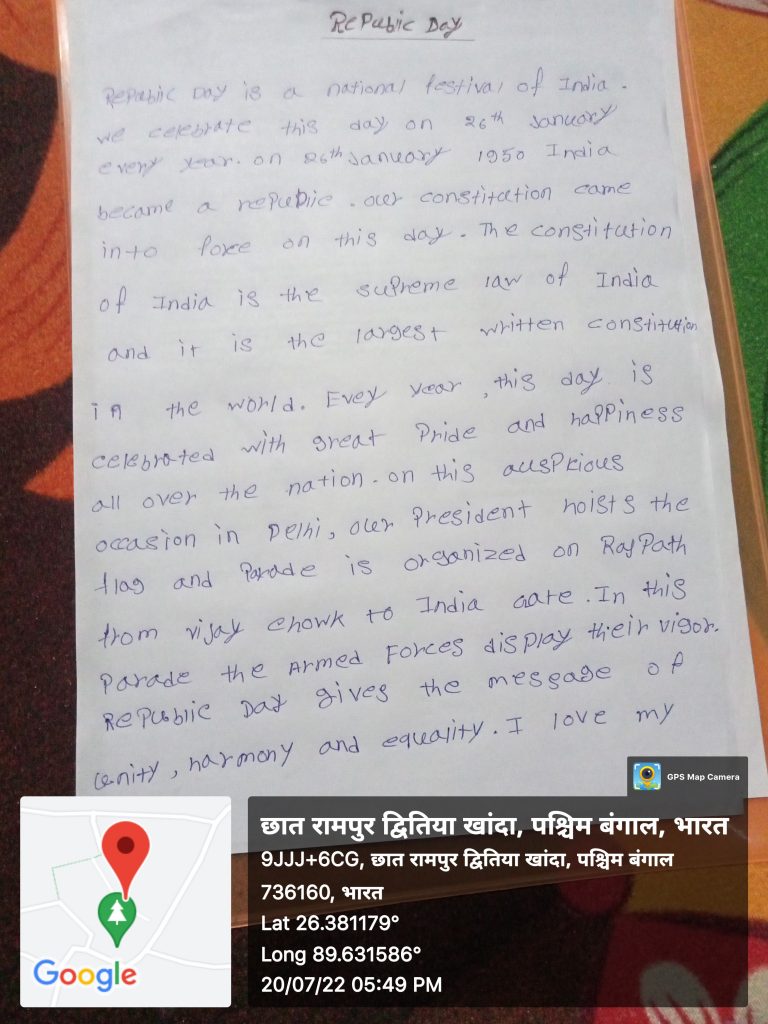 Republic Day
Republic Day is a national festival of India.
we celebrate this day on 26th January
every year. on 26th January 1950 India
became a republic. our constitution came
into force on this day. The constitution
of India is the supreme law of India
and it is the largest written constitution
in the world. Evey year, this day is
celebrated with great Pride and happiness
all over the nation. on this auspicious
occasion in Delhi, our President hoists the
flag and Parade is organized on RajPath
from vijay chowk to India Gate. In this
Parade the Armed Forces display their vigor.
Republic Day gives the message of
unity, harmony and equality. I love my
GPS Map Camera
छात रामपुर द्वितिया खांदा, पश्चिम बंगाल, भारत
9JJJ+6CG, छात रामपुर द्वितिया खांदा, पश्चिम बंगाल
736160, भारत
Lat 26.381179°
Long 89.631586°
20/07/22 05:49 PM
Google